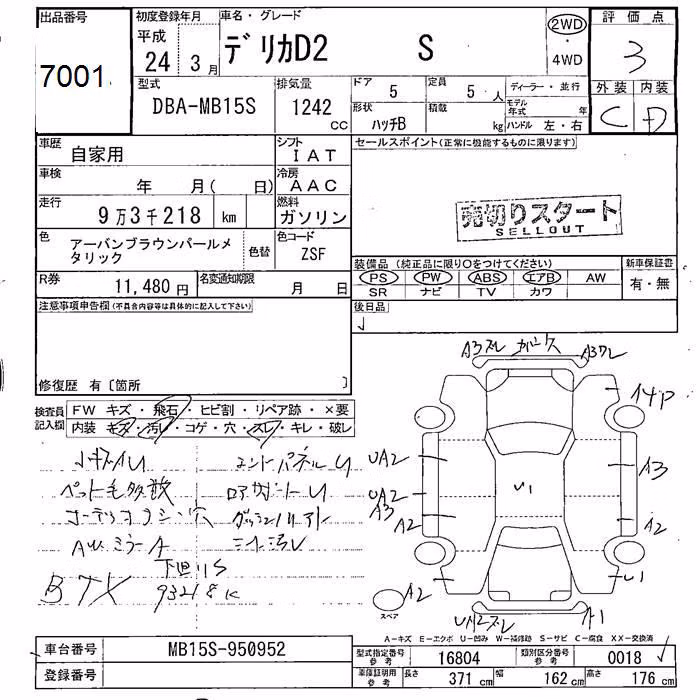 出品番号
7001
初度登録年月
平成
24 3月
車名・グレード
デリカD2 S
2WD
・
4WD
評価点
3
外装 内装
C D
型式
DBA-MB15S
排気量
1242
CC
ドア 5
定員 5人
形状 ハッチB
積載 kg
ディーラー・並行
モデル年式 年
ハンドル 左・右
車歴 自家用
シフト IAT
車検 年 月( 日)
冷房 AAC
走行 9万3千218 km
燃料 ガソリン
色 アーバンブラウンパールメタリック
色替
色コード ZSF
R券 11,480円
名変通知期限 月 日
セールスポイント(正常に機能するものに限ります)
売切りスタート
SELLOUT
装備品(純正品に限り○をつけてください)
PS PW ABS エアB AW
SR ナビ TV カワ
新車保証書
有・無
注意事項申告欄(不具合内容等は具体的に記入して下さい)
後日品
修復歴 有〔箇所 〕
検査員記入欄
FW キズ・飛石・ヒビ割・リペア跡・×要
内装 キズ・汚レ・コゲ・穴・スレ・キレ・破レ
エンドパネルU
ペット毛多数
A4ミラーA
下回りS
BTX 93218K
A3スレ
14P
UA2
U1
A3
UA2
A3
A2
A2
U1
A2
スペア
A1
A-キズ E-エクボ U-凹み W-補修跡 S-サビ C-腐食 XX-交換済
車台番号 MB15S-950952
登録番号
型式指定番号 参考 16804
類別区分番号 参考 0018
車庫証明用 参考
長さ 371 cm
幅 162 cm
高さ 176 cm